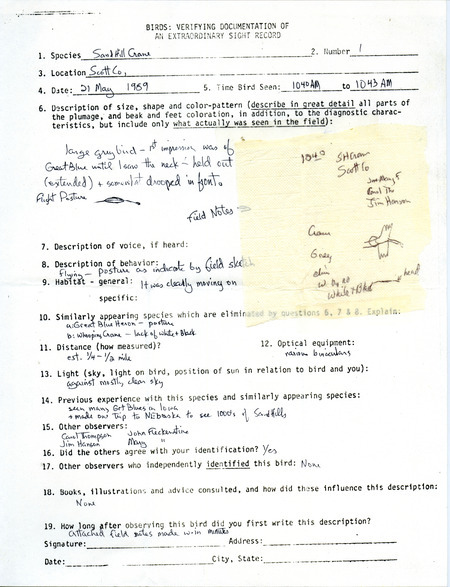 BIRDS: VERIFYING DOCUMENTATION OF
AN EXTRAORDINARY SIGHT RECORD
1. Species Sandhill Crane 2. Number 1
3. Location Scott Co,
4. Date: 21 May 1989 5. Time Bird Seen: 1040 AM to 1043 AM
6. Description of size, shape and color-pattern (describe in great detail all parts of
the plumage, and beak and feet coloration, in addition, to the diagnostic charac-
teristics, but include only what actually was seen in the field):
large grey bird - 1st impression was of
Great Blue until I saw the neck - held out
(extended) + somewhat drooped in front.
Flight Posture
Field Notes
1040 SH Crane
Scott Co
Jim Hanson
Crane
Grey
head
7. Description of voice, if heard:
8. Description of behavior:
flying - posture as indicate by field sketch
9. Habitat - general: It was clearly moving on
specific:
10. Similarly appearing species which are eliminated by questions 6, 7 & 8. Explain:
a: Great Blue Heron - posture
b: Whooping Crane - lack of white + Black
11. Distance (how measured)? 12. Optical equipment:
est. 1/4 - 1/2 mile binoculars
13. Light (sky, light on bird, position of sun in relation to bird and you):
against mostly clear sky
14. Previous experience with this species and similarly appearing species:
seen many Grt Blues in Iowa
+ made one Trip to Nebraska to see 1000's of Sandhills
15. Other observers:
Carol Thompson John Fleckenstine
Jim Hanson Mary "
16. Did the others agree with your identification? Yes
17. Other observers who independently identified this bird: None
18. Books, illustrations and advice consulted, and how did these influence this description:
None
19. How long after observing this bird did you first write this description?
Attached field notes made w-in minutes
Signature: Address:
Date: City, State: